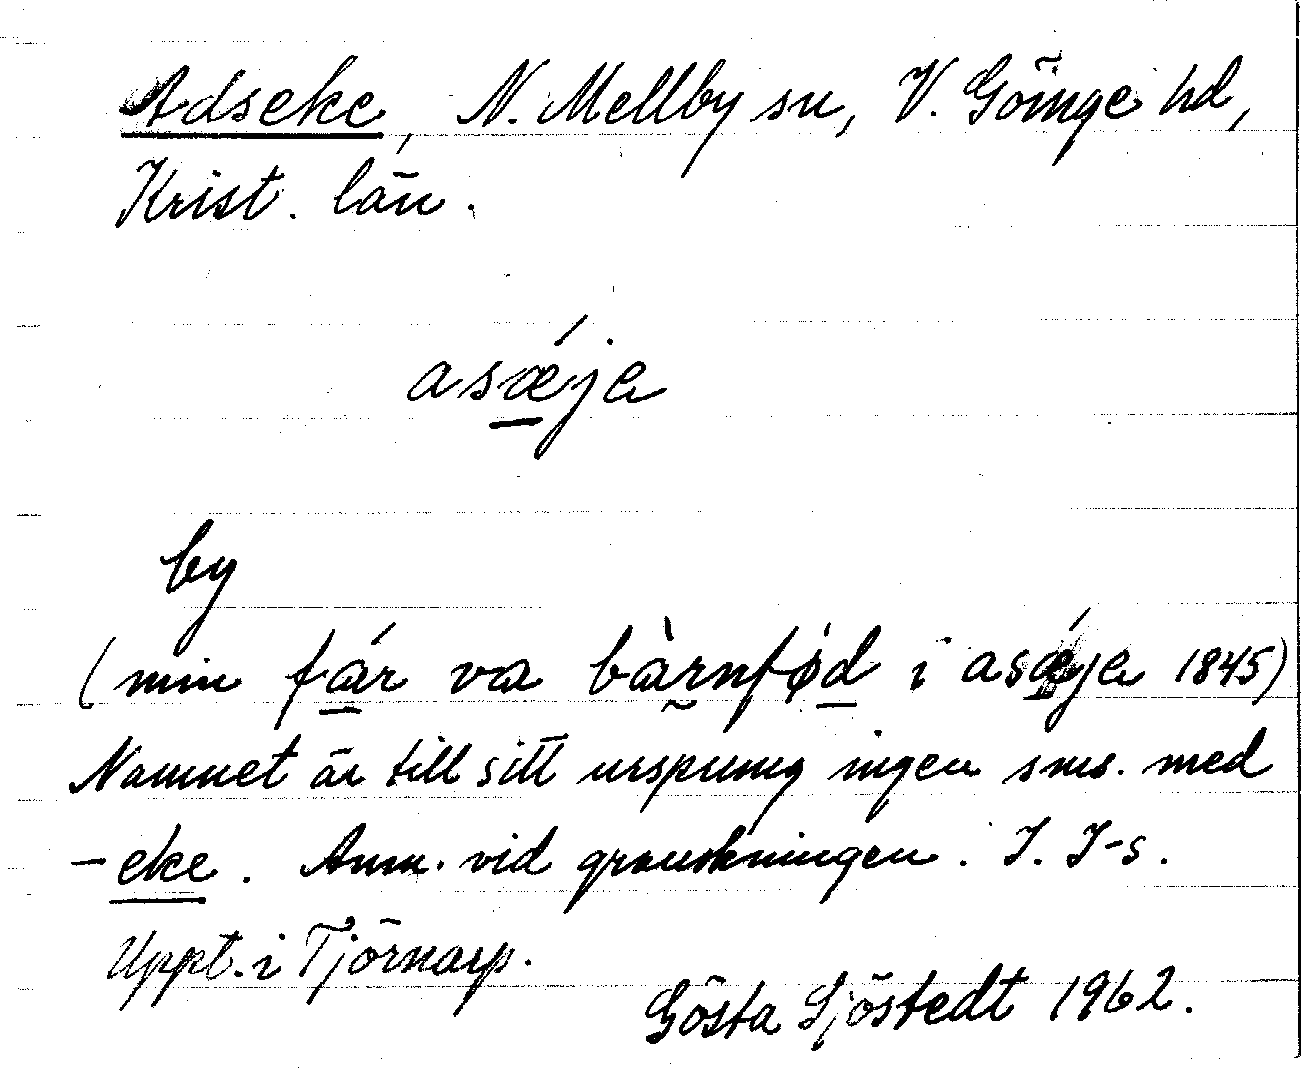 Adseke, N. Mellby sn, V. Göinge hd,
Krist. län.
asǽje
by
(min fár va bàrnfød i asǽje 1845)
Namnet är till sitt ursprung ingen sms. med
-eke. Anm. vid granskningen. I. I-s.
Uppt. i Tjörnarp.
Gösta Sjöstedt 1962.